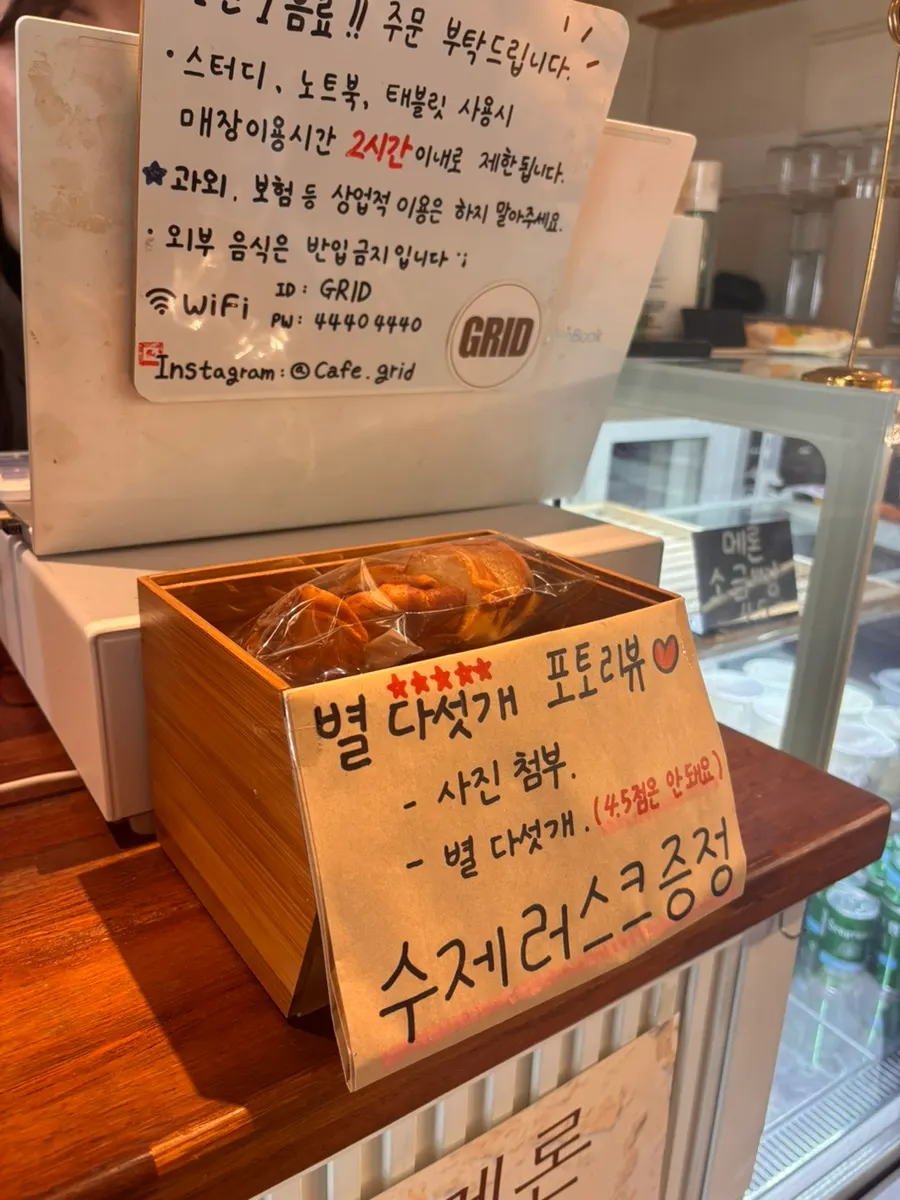 음료!! 주문 부탁드립니다.
· 스터디, 노트북, 태블릿 사용시
매장이용시간 2시간이내로 제한됩니다.
과외, 보험 등 상업적 이용은 하지 말아주세요.
· 외부 음식은 반입금지입니다
WiFi ID : GRID
PW : 44404440
Instagram : @Cafe.grid
GRID
메론
별 다섯개 포토리뷰
- 사진 첨부.
- 별 다섯개. (4.5점은 안돼요)
수제러스크증정
메론